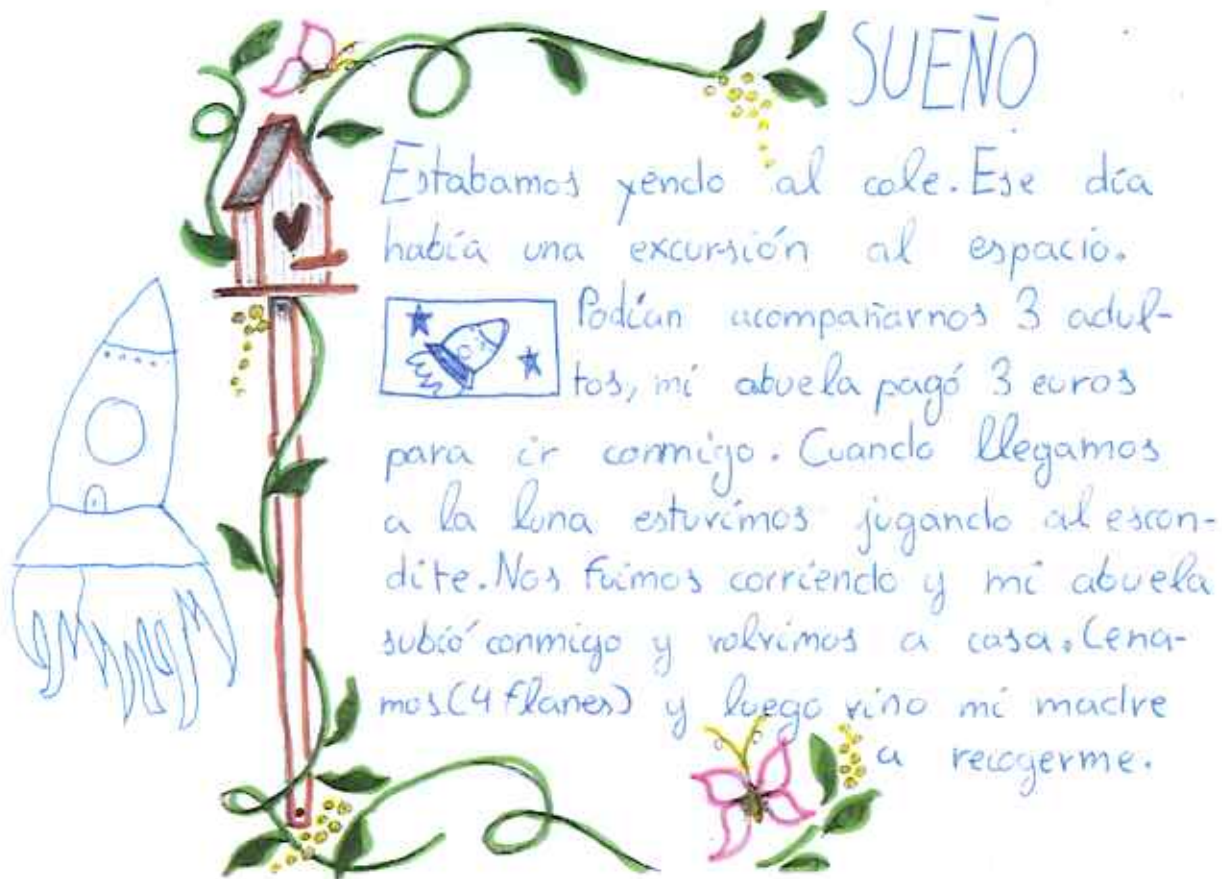 SUEÑO
Estabamos yendo al cole. Ese día
había una excursión al espacio.
Podían acompañarnos 3 adul-
tos, mi abuela pagó 3 euros
para ir conmigo. Cuando llegamos
a la luna estuvimos jugando al escon-
dite. Nos fuimos corriendo y mi abuela
subió conmigo y volvimos a casa. Cena-
mos (4 flanes) y luego vino mi madre
a recogerme.